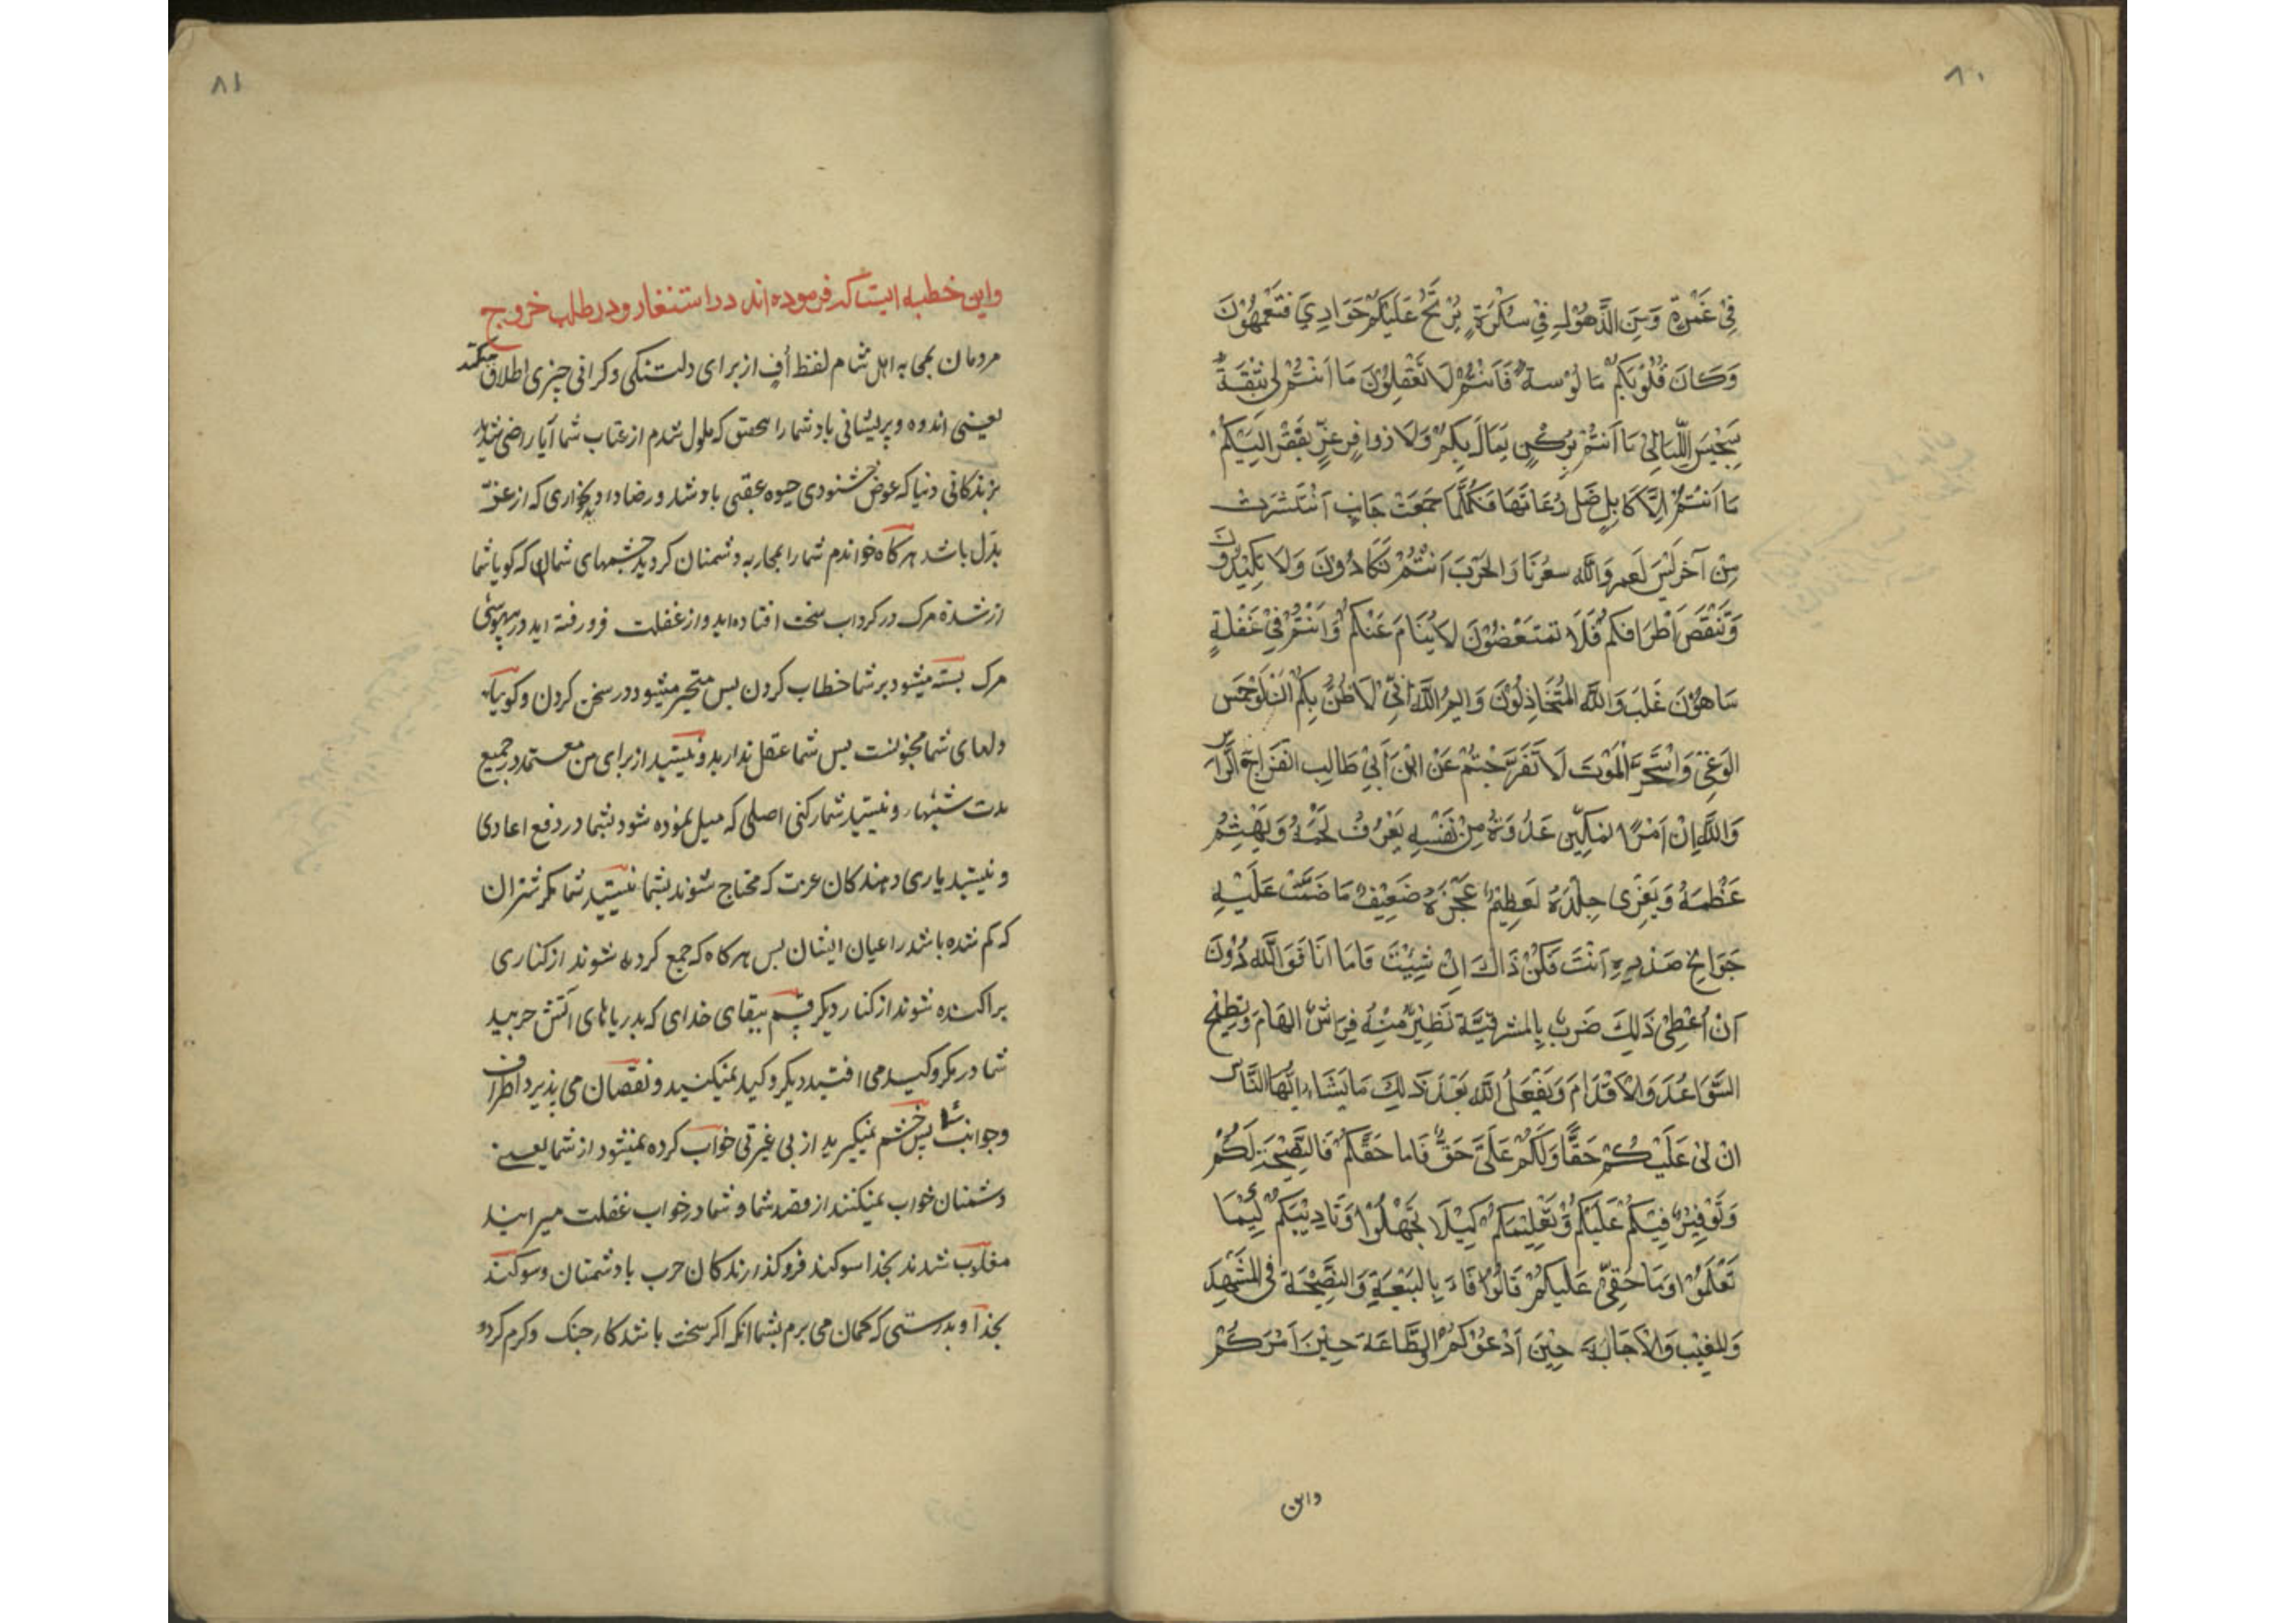 ٨٠
فِي غَمْرَةٍ وَمِنَ الذَّهُولِ فِي سَكْرَةٍ يُرْتَجُ عَلَيْكُمْ حَوَارِي فَتَعْمَهُوْنَ
وَكَانَ قُلُوْبَكُمْ مَالُوْسة فَاَنْتُمْ لَا تَعْقِلُوْنَ مَا اَنْتُمْ لِي بِثِقَةٍ
سَجِيْسَ اللَّيَالِيْ مَا اَنْتُمْ بِرُكْنٍ يُمَالُ بِكُمْ وَلَا زوافِر عِزٍّ يَفْقَرُ اِلَيْكُمْ
مَا اَنْتُمْ اِلَّا كَاِبِلٍ ضَل رُعَاتهَا فَكُلَّمَا جَمَعَتْ جَانِب اَنْتَشَرَتْ
مِنْ آخَر لَبِسَ لَعمر وَاللَّه سعْرنَا وَالحَرْبَ اَنْتُمْ تَكَادُونَ وَلَا تَكِيْدُوْنَ
وَتَنْقَصُ اَطْرَافكم فَلَا تمتَعَضُوْنَ لَا يُنَامَ عَنْكُمْ وَاَنْتُمْ فِيْ غَفْلَةٍ
سَاهُوْنَ غَلَبَ وَاللَّهِ المُتَخَاذِلُوْنَ وَايم اللَّهِ اِنِّيْ لَاَظُنُّ بِكُمْ اَنْ لَوْحَمِسَ
الوَغى وَاسْتَحَرَّ المَوْت لَا تَفَرَّجْتُمْ عَنْ ابْنِ اَبِيْ طَالِب انْفَرَاجَ الرَّاسِ
وَاللَّهِ اِنْ اَمْرًا يمَكِّن عَدُوَّهُ مِنْ نَفْسِهِ يَعْرُفُ لَحْمُهُ وَيَهْشِمُ
عَظْمَهُ وَيَفْرِى جِلْدَهُ لَعَظِيْمٌ عَجْزهُ ضَعِيْفٌ مَا ضَمَّتْ عَلَيْهِ
جَوَانِح صَدْرِهِ اَنْتَ فَكُنْ ذَاكَ اِنْ شِئْتَ فَامَا اَنَا فَوَ اللَّهِ دُوْنَ
اَنْ اُعْطِيَ ذَلِكَ ضَرْبٌ بِالمشرفيَّة تَطِيْرُ مِنْهُ فِرَاشُ الهَامَ وَتَطِيْحُ
السَّوَاعدَ وَالاَقْدَامَ وَيَفْعَلُ اللَّه بَعْدَ ذَلِكَ مَا يَشَاءُ اَيُّهَا النَّاسُ
اِنْ لِيْ عَلَيْكُمْ حَقًّا وَلَكُمْ عَلَيَّ حَقٌّ فَاما حَقّكُمْ فَالنَّصِيْحَة لَكُمْ
وَتَوْفِيْرُ فِيْئكُمْ عَلَيْكُمْ وَتَعْلِيْمكُمْ كَيْلَا تَجْهَلُوْا وَتَادِيْبَكُمْ كَيْمَا
تَعْلَمُوْا وَمَا حَقِّيْ عَلَيكُمْ فَالْوَفَاءَ بِالبَيْعَةِ وَالنَّصِيْحَةَ فى المَشْهَد
وَالمغِيْب وَالاَجَابَة حِيْنَ اَدْعُوْكُمْ وَالطَّاعَةَ حِيْنَ اَمُرَكُمْ
واين
٨١
واين خطبه ايست كه فرموده اند در استنفار و در طلب خروج
مردمان بمحاربه اهل شام لفظ أف از براى دلتنكى وكرانى چيزى اطلاق ميكنند
يعنى اندوه و پريشانى باد شما را بتحقيق كه ملول شدم از عتاب شما آيا راضى شديد
بزندكانى دنيا كه عوض خشنودى حيوه عقبى باد شد و رضا داديد بخوارى كه از عزّ
بدَل باشد هركاه خواندم شما را بمحاربه دشمنان كرديد چشمهاى شما ان كه كويا شما
از شدّة مرك در كرداب سخت افتاده ايد و از غفلت فرو رفته ايد در بيهوشى
مرك بسته ميشود بر شما خطاب كردن پس متحير ميشود در سخن كردن و كوييا
دلهاى شما مجنونست پس شما عقل نداريد و نيستيد از براى من معتمد در جميع
مدت شبها و نيستيد شما ركنى اصلى كه ميل نموده شود بشما در دفع اعادى
و نيستيد يارى دهندكان عزت كه محتاج شوند بشما نيستيد شما مكر شتران
كه كم شده باشد راعيان ايشان پس هركاه كه جمع كرده شوند از كنارى
پراكنده شوند از كنار ديكر قسم ببقاى خداى كه بدريا هاى آتش حربيد
شما در مكر و كيد مى افتيد ديكر و كيد نميكنيد و نقصان مى پذيرد اطراف
و جوانب شما پس خشم نميكيريد از بى غيرتى خواب كرده نميشود از شما يعنے
دشمنان خواب نميكنند از قصد شما و شما در خواب غفلت ميرانيد
مغلوب شدند بخدا سوكند فرو كذارندكان حرب با دشمنان و سوكند
بخدا و بدرستى كه كمان مى برم بشما انكه اكر سخت باشد كار جنك و كرم كردد